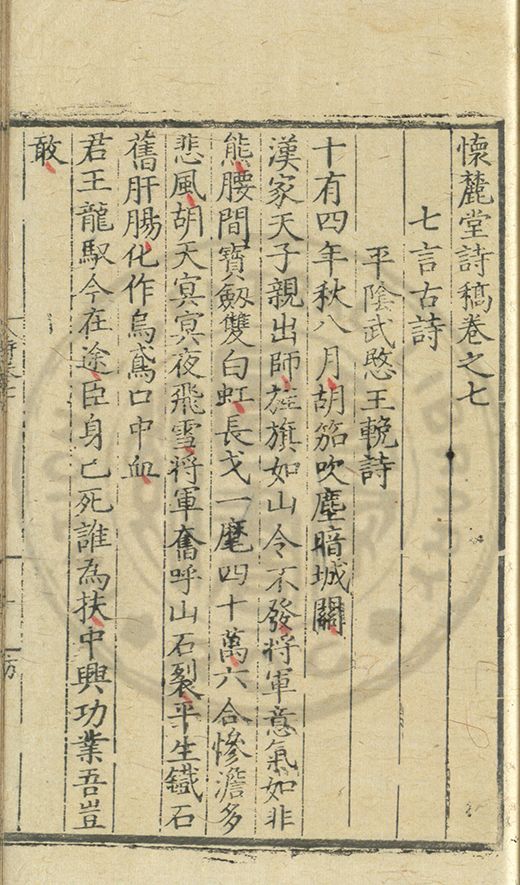 懷麓堂詩稿卷之七
七言古詩
平陰武愍王輓詩
十有四年秋八月胡笳吹塵暗城關
漢家天子親出師旌旗如山令不發將軍意氣如非
熊腰間寶劔雙白虹長戈一麾四十萬六合慘澹多
悲風胡天冥冥夜飛雪將軍奮呼山石裂平生鐵石
舊肝腸化作烏鳶口中血
君王龍馭今在途臣身已死誰為扶中興功業吾豈
敢